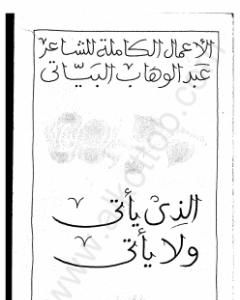 الأعمال الكاملة للشاعر
عبد الوهاب البيّاتى
الذى يأتى
ولا يأتى